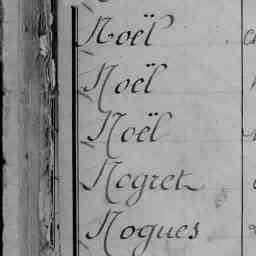 Noël
Noël
Noël
Nogret
Nogues